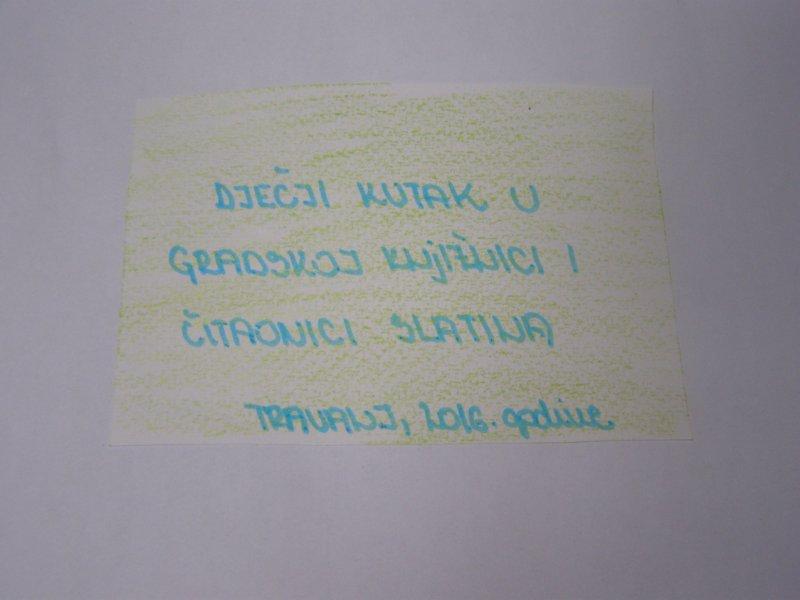 DJEČJI KUTAK U
GRADSKOJ KNJIŽNICI I
ČITAONICI SLATINA
TRAVANJ, 2016. godine.